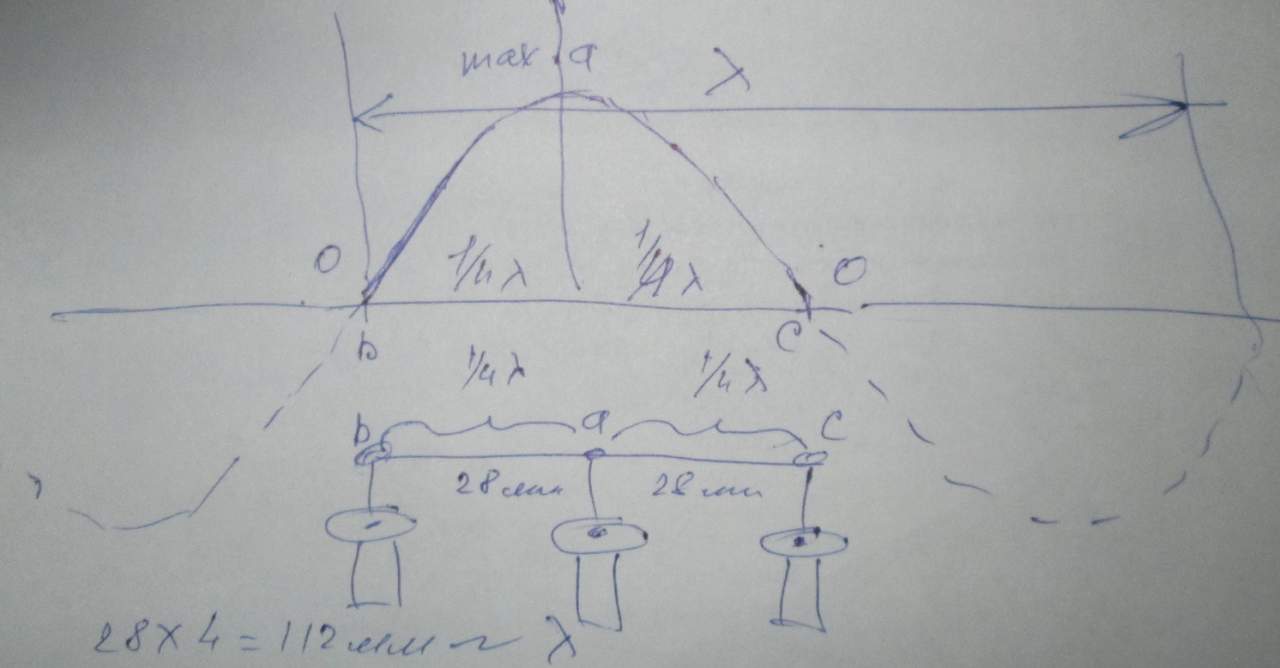 max a λ
0 1/4 λ 1/4 λ 0
b c
1/4 λ 1/4 λ
b a c
28 мм 28 мм
28 × 4 = 112 мм ~ λ